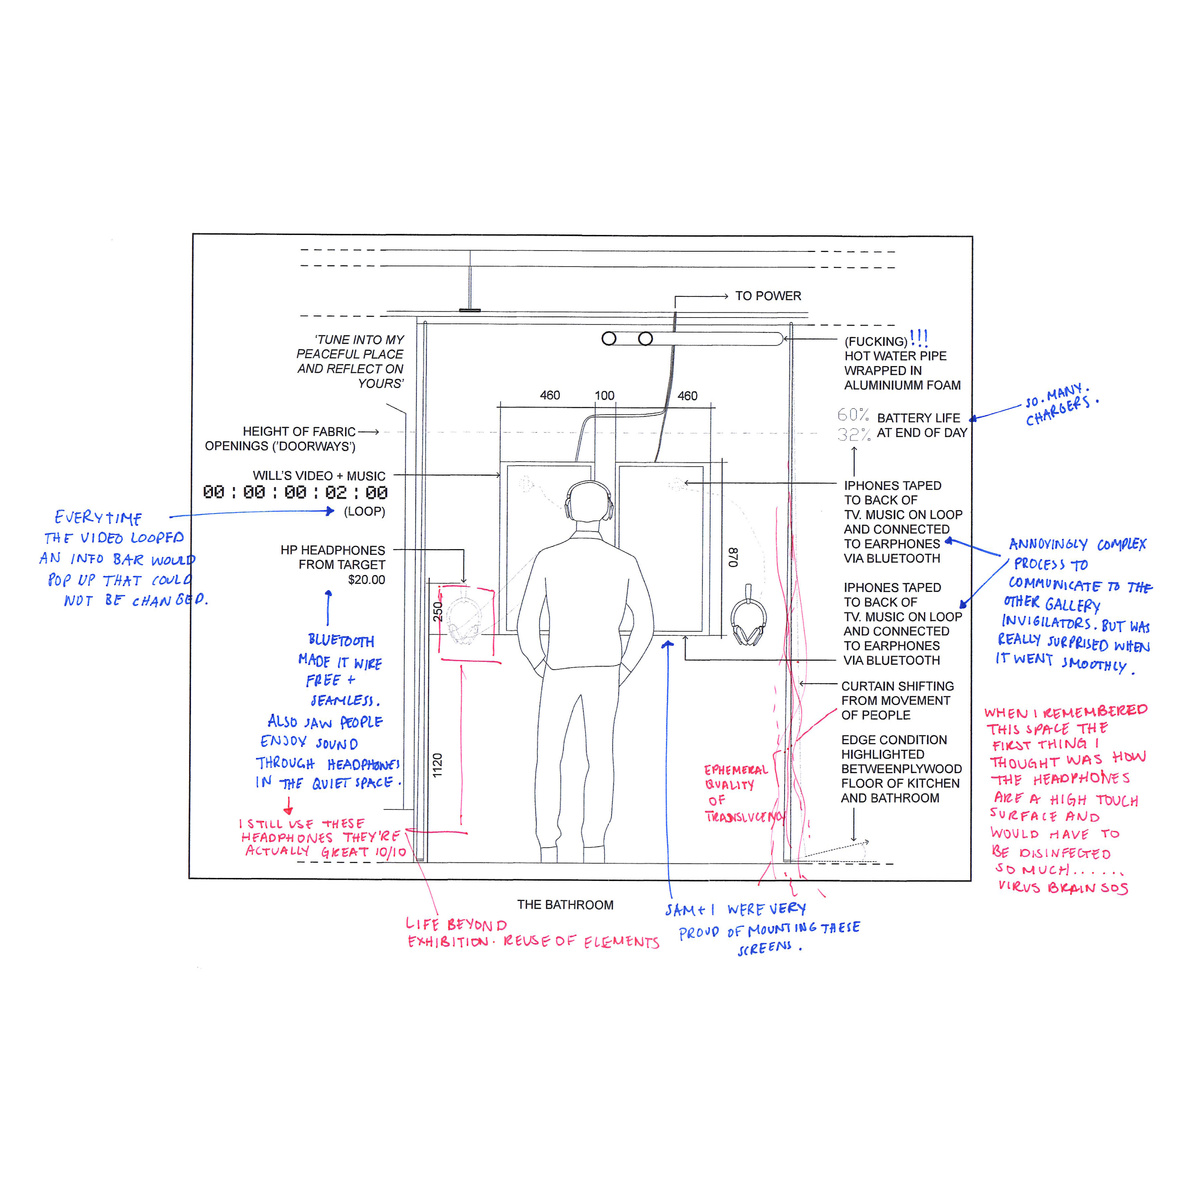 TO POWER
'TUNE INTO MY
PEACEFUL PLACE
AND REFLECT ON
YOURS'
(FUCKING) !!!
HOT WATER PIPE
WRAPPED IN
ALUMINIUMM FOAM
460
100
460
SO. MANY.
CHARGERS.
60%
32%
BATTERY LIFE
AT END OF DAY
HEIGHT OF FABRIC
OPENINGS ('DOORWAYS')
WILL'S VIDEO + MUSIC
00:00:00:02:00
(LOOP)
EVERYTIME
THE VIDEO LOOPED
AN INFO BAR WOULD
POP UP THAT COULD
NOT BE CHANGED.
IPHONES TAPED
TO BACK OF
TV. MUSIC ON LOOP
AND CONNECTED
TO EARPHONES
VIA BLUETOOTH
HP HEADPHONES
FROM TARGET
$20.00
870
250
IPHONES TAPED
TO BACK OF
TV. MUSIC ON LOOP
AND CONNECTED
TO EARPHONES
VIA BLUETOOTH
ANNOYINGLY COMPLEX
PROCESS TO
COMMUNICATE TO THE
OTHER GALLERY
INVIGILATORS. BUT WAS
REALLY SURPRISED WHEN
IT WENT SMOOTHLY.
BLUETOOTH
MADE IT WIRE
FREE +
SEAMLESS.
ALSO SAW PEOPLE
ENJOY SOUND
THROUGH HEADPHONES
IN THE QUIET SPACE.
CURTAIN SHIFTING
FROM MOVEMENT
OF PEOPLE
1120
EDGE CONDITION
HIGHLIGHTED
BETWEENPLYWOOD
FLOOR OF KITCHEN
AND BATHROOM
EPHEMERAL
QUALITY
OF
TRANSLUCENCY
WHEN I REMEMBERED
THIS SPACE THE
FIRST THING I
THOUGHT WAS HOW
THE HEADPHONES
ARE A HIGH TOUCH
SURFACE AND
WOULD HAVE TO
BE DISINFECTED
SO MUCH......
VIRUS BRAIN SOS
I STILL USE THESE
HEADPHONES THEY'RE
ACTUALLY GREAT 10/10
THE BATHROOM
LIFE BEYOND
EXHIBITION. REUSE OF ELEMENTS
SAM + I WERE VERY
PROUD OF MOUNTING THESE
SCREENS.